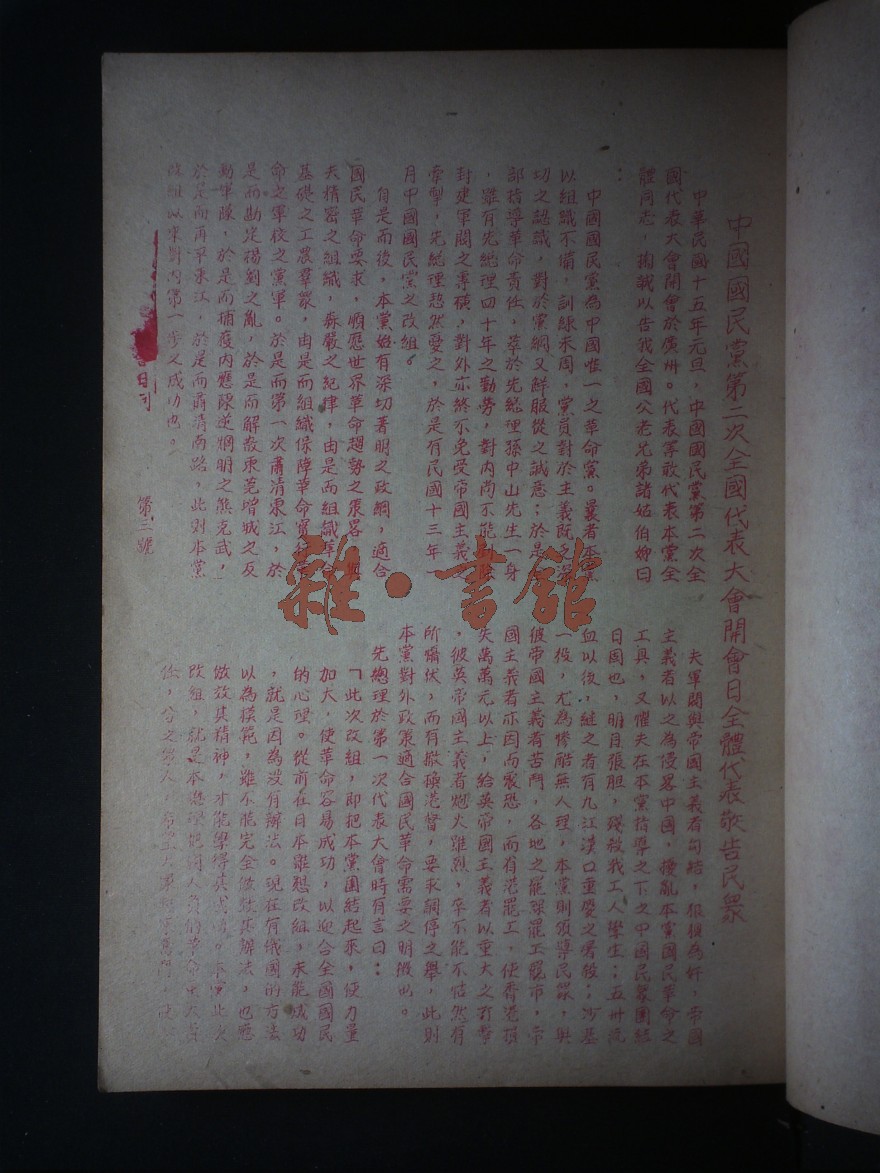 中國國民黨第二次全國代表大會開會日全體代表敬告民眾
中華民國十五年元旦，中國國民黨第二次全
國代表大會開會於廣州。代表等敢代表本黨全
體同志，掬誠以告我全國父老兄弟諸姑伯姊曰
：
中國國民黨為中國惟一之革命黨。曩者本黨
以組織不備，訓練未周，黨員對於主義既乏深
切之認識，對於黨綱又鮮服從之誠意；於是全
部指導革命責任，萃於先總理孫中山先生一身
，雖有先總理四十年之勤勞，對內尚不能剷除
封建軍閥之專橫，對外亦終不免受帝國主義之
牽掣，先總理惄然憂之，於是有民國十三年一
月中國國民黨之改組。
自是而後，本黨始有深切著明之政綱，適合
國民革命要求，順應世界革命趨勢之策畧與
夫精密之組織，森嚴之紀律，由是而組織革命
基礎之工農羣眾，由是而組織保障革命實
命之軍校之黨軍。於是而第一次肅清東江，於
是而勘定楊劉之亂，於是而解散東莞增城之反
動軍隊，於是而捕獲內應陳逆炯明之熊克武，
於是而再平東江，於是而肅清南路，此則本黨
改組以來對內第一步之成功也。
日刊
第三號
夫軍閥與帝國主義者勾結，狼狽為奸，帝國
主義者以之為侵畧中國，擾亂本黨國民革命之
工具，又懼夫在本黨指導之下之中國民眾團結
日固也，明目張胆，殘殺我工人學生；五卅流
血以後，繼之者有九江漢口重慶之屠殺；沙基
一役，尤為慘酷無人理，本黨則領導民眾，與
彼帝國主義者苦鬥，各地之能踩罷工罷市，帝
國主義者亦因而震恐，而有港罷工，使香港損
失萬萬元以上，給英帝國主義者以重大之打擊
，彼英帝國主義者炮火雖烈，卒不能不惦然有
所懾伏，而有撤換港督，要求調停之舉，此則
本黨對外政策適合國民革命需要之明徵也。
先總理於第一次代表大會時有言曰：
「此次改組，即把本黨團結起來，使力量
加大，使革命容易成功，以迎合全國國民
的心理。從前在日本雖想改組，未能成功
，就是因為沒有辦法。現在有俄國的方法
以為模範，雖不能完全倣效其辦法，也應
倣效其精神，才能學得其成功。本黨此次
改組，就是本總理把個人負的革命重大責
任，分之眾人，希望大家
雜·書館